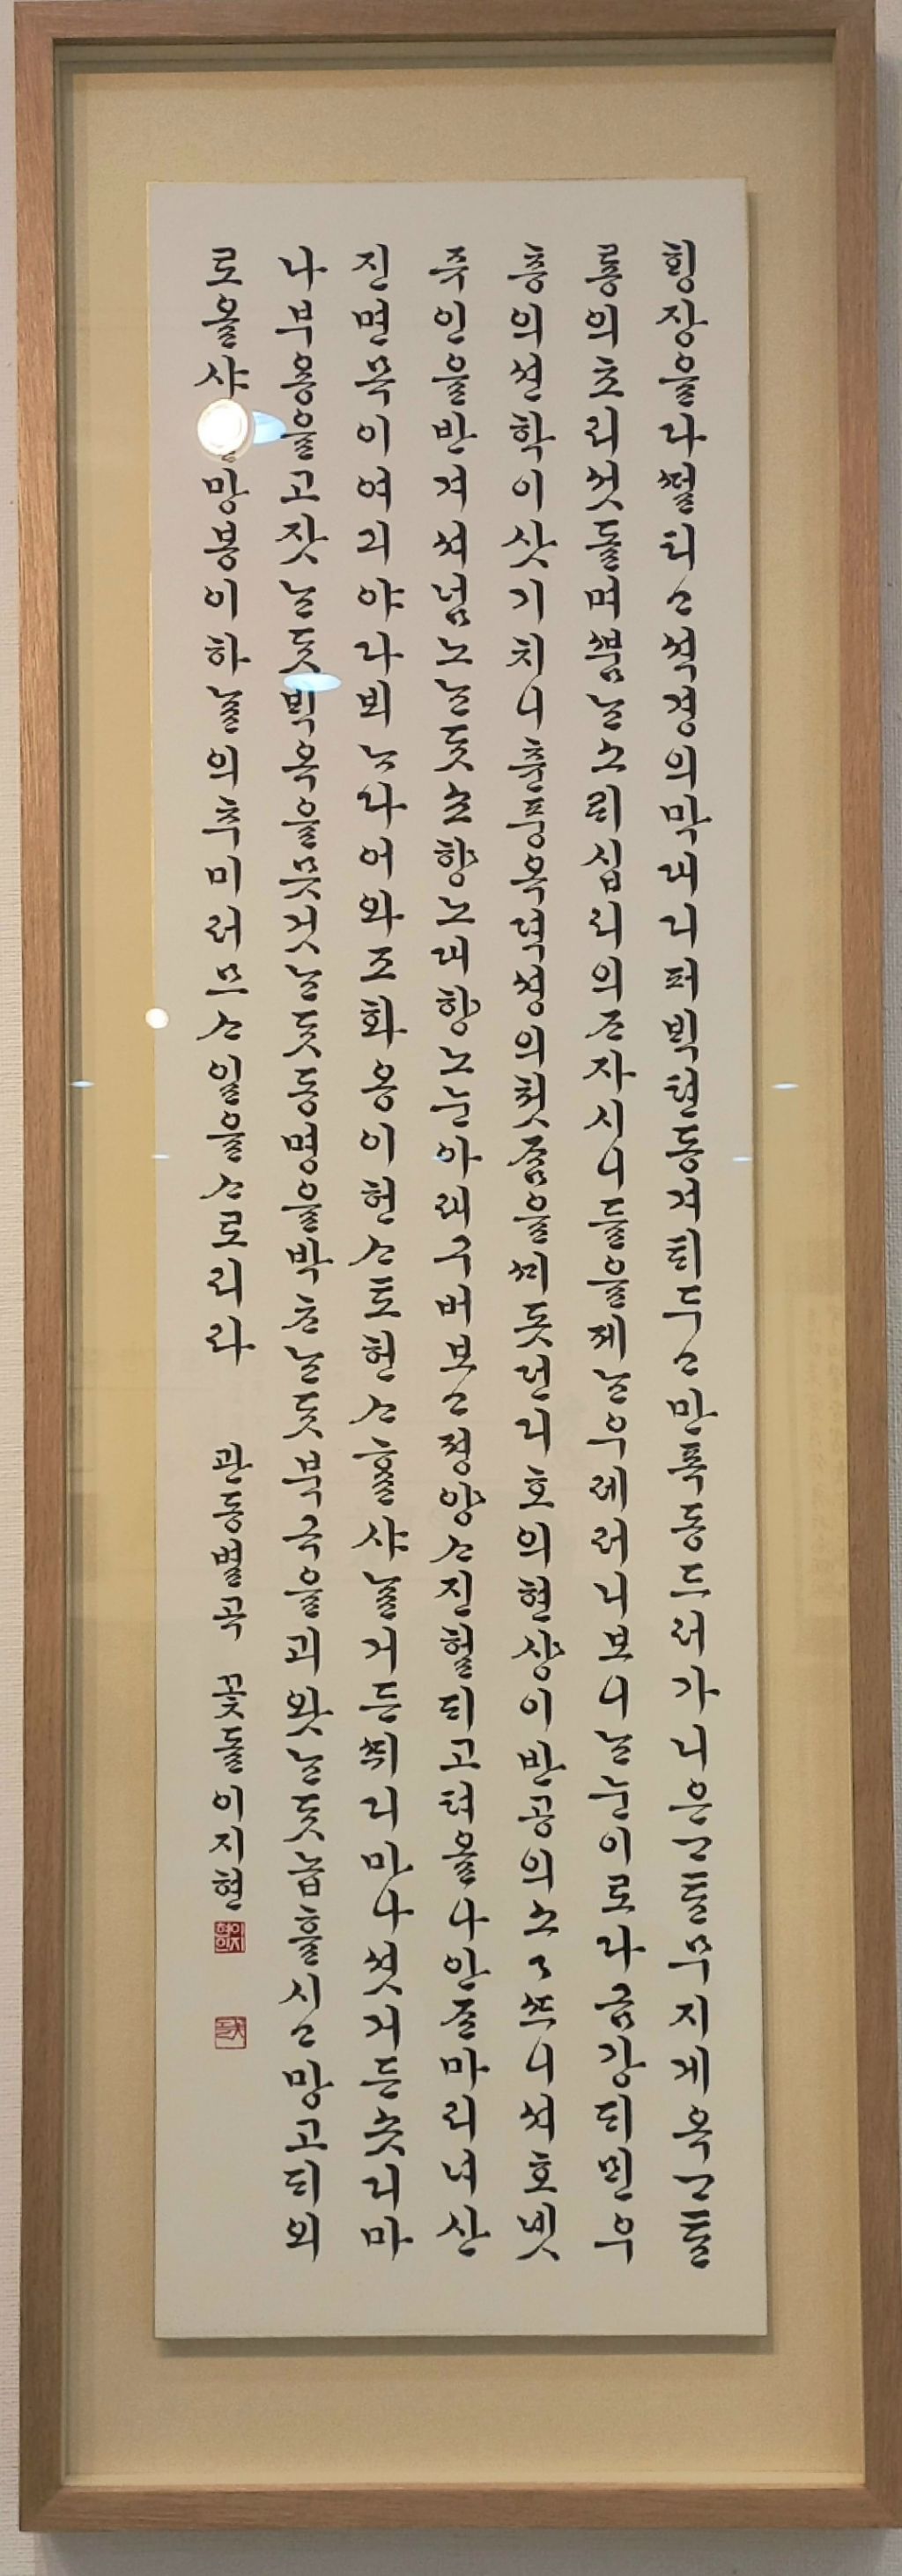 힝장을다ᄠᅥᆯ티고셕경의막대디퍼ᄇᆡᆨ쳔동겨ᄐᆡ두고만폭동드러가니은ᄀᆞᄐᆞᆫ무지게옥ᄀᆞᄐᆞᆫ
룡의초리섯돌며ᄲᅮᆷᄂᆞᆫ소ᄅᆡ십리의ᄌᆞ자시니들을제ᄂᆞᆫ우레러니보니ᄂᆞᆫ눈이로다금강ᄃᆡᄆᆡᆫ우
층의션학이삿기치니츈풍옥뎍셩의첫ᄌᆞᆷ을ᄭᆡ돗던디호의현샹이반공의소소ᄯᅳ니셔호녯
쥬인을반겨셔넘노ᄂᆞᆫᄃᆞᆺ쇼향노대향노눈아래구버보고졍양ᄉᆞ진헐ᄃᆡ고텨올나안ᄌᆞᆫ마리녀산
진면목이여긔야다뵈ᄂᆞ다어와조화옹이헌ᄉᆞ토헌ᄉᆞᄒᆞᆯ샤ᄂᆞᆯ거든ᄯᅱ디마나셧거든솟디마
나부용을고잣ᄂᆞᆫᄃᆞᆺᄇᆡᆨ옥을믓것ᄂᆞᆫᄃᆞᆺ동명을박ᄎᆞᄂᆞᆫᄃᆞᆺ북극을괴왓ᄂᆞᆫᄃᆞᆺ놉흘시고망고ᄃᆡ외
로올샤망봉이하ᄂᆞᆯ의추미러므ᄉᆞ일을ᄉᆞ로리라 관동별곡 꽃돌이지현